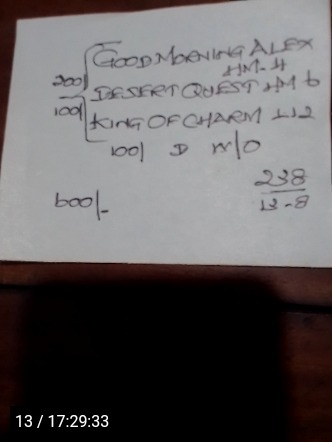 GOOD MORNING ALEX
HM-H
200/
DESERT QUEST HM 6
100/
KING OF CHARM 112
100/ D W/O
600/-
238
13-8
13 / 17:29:33